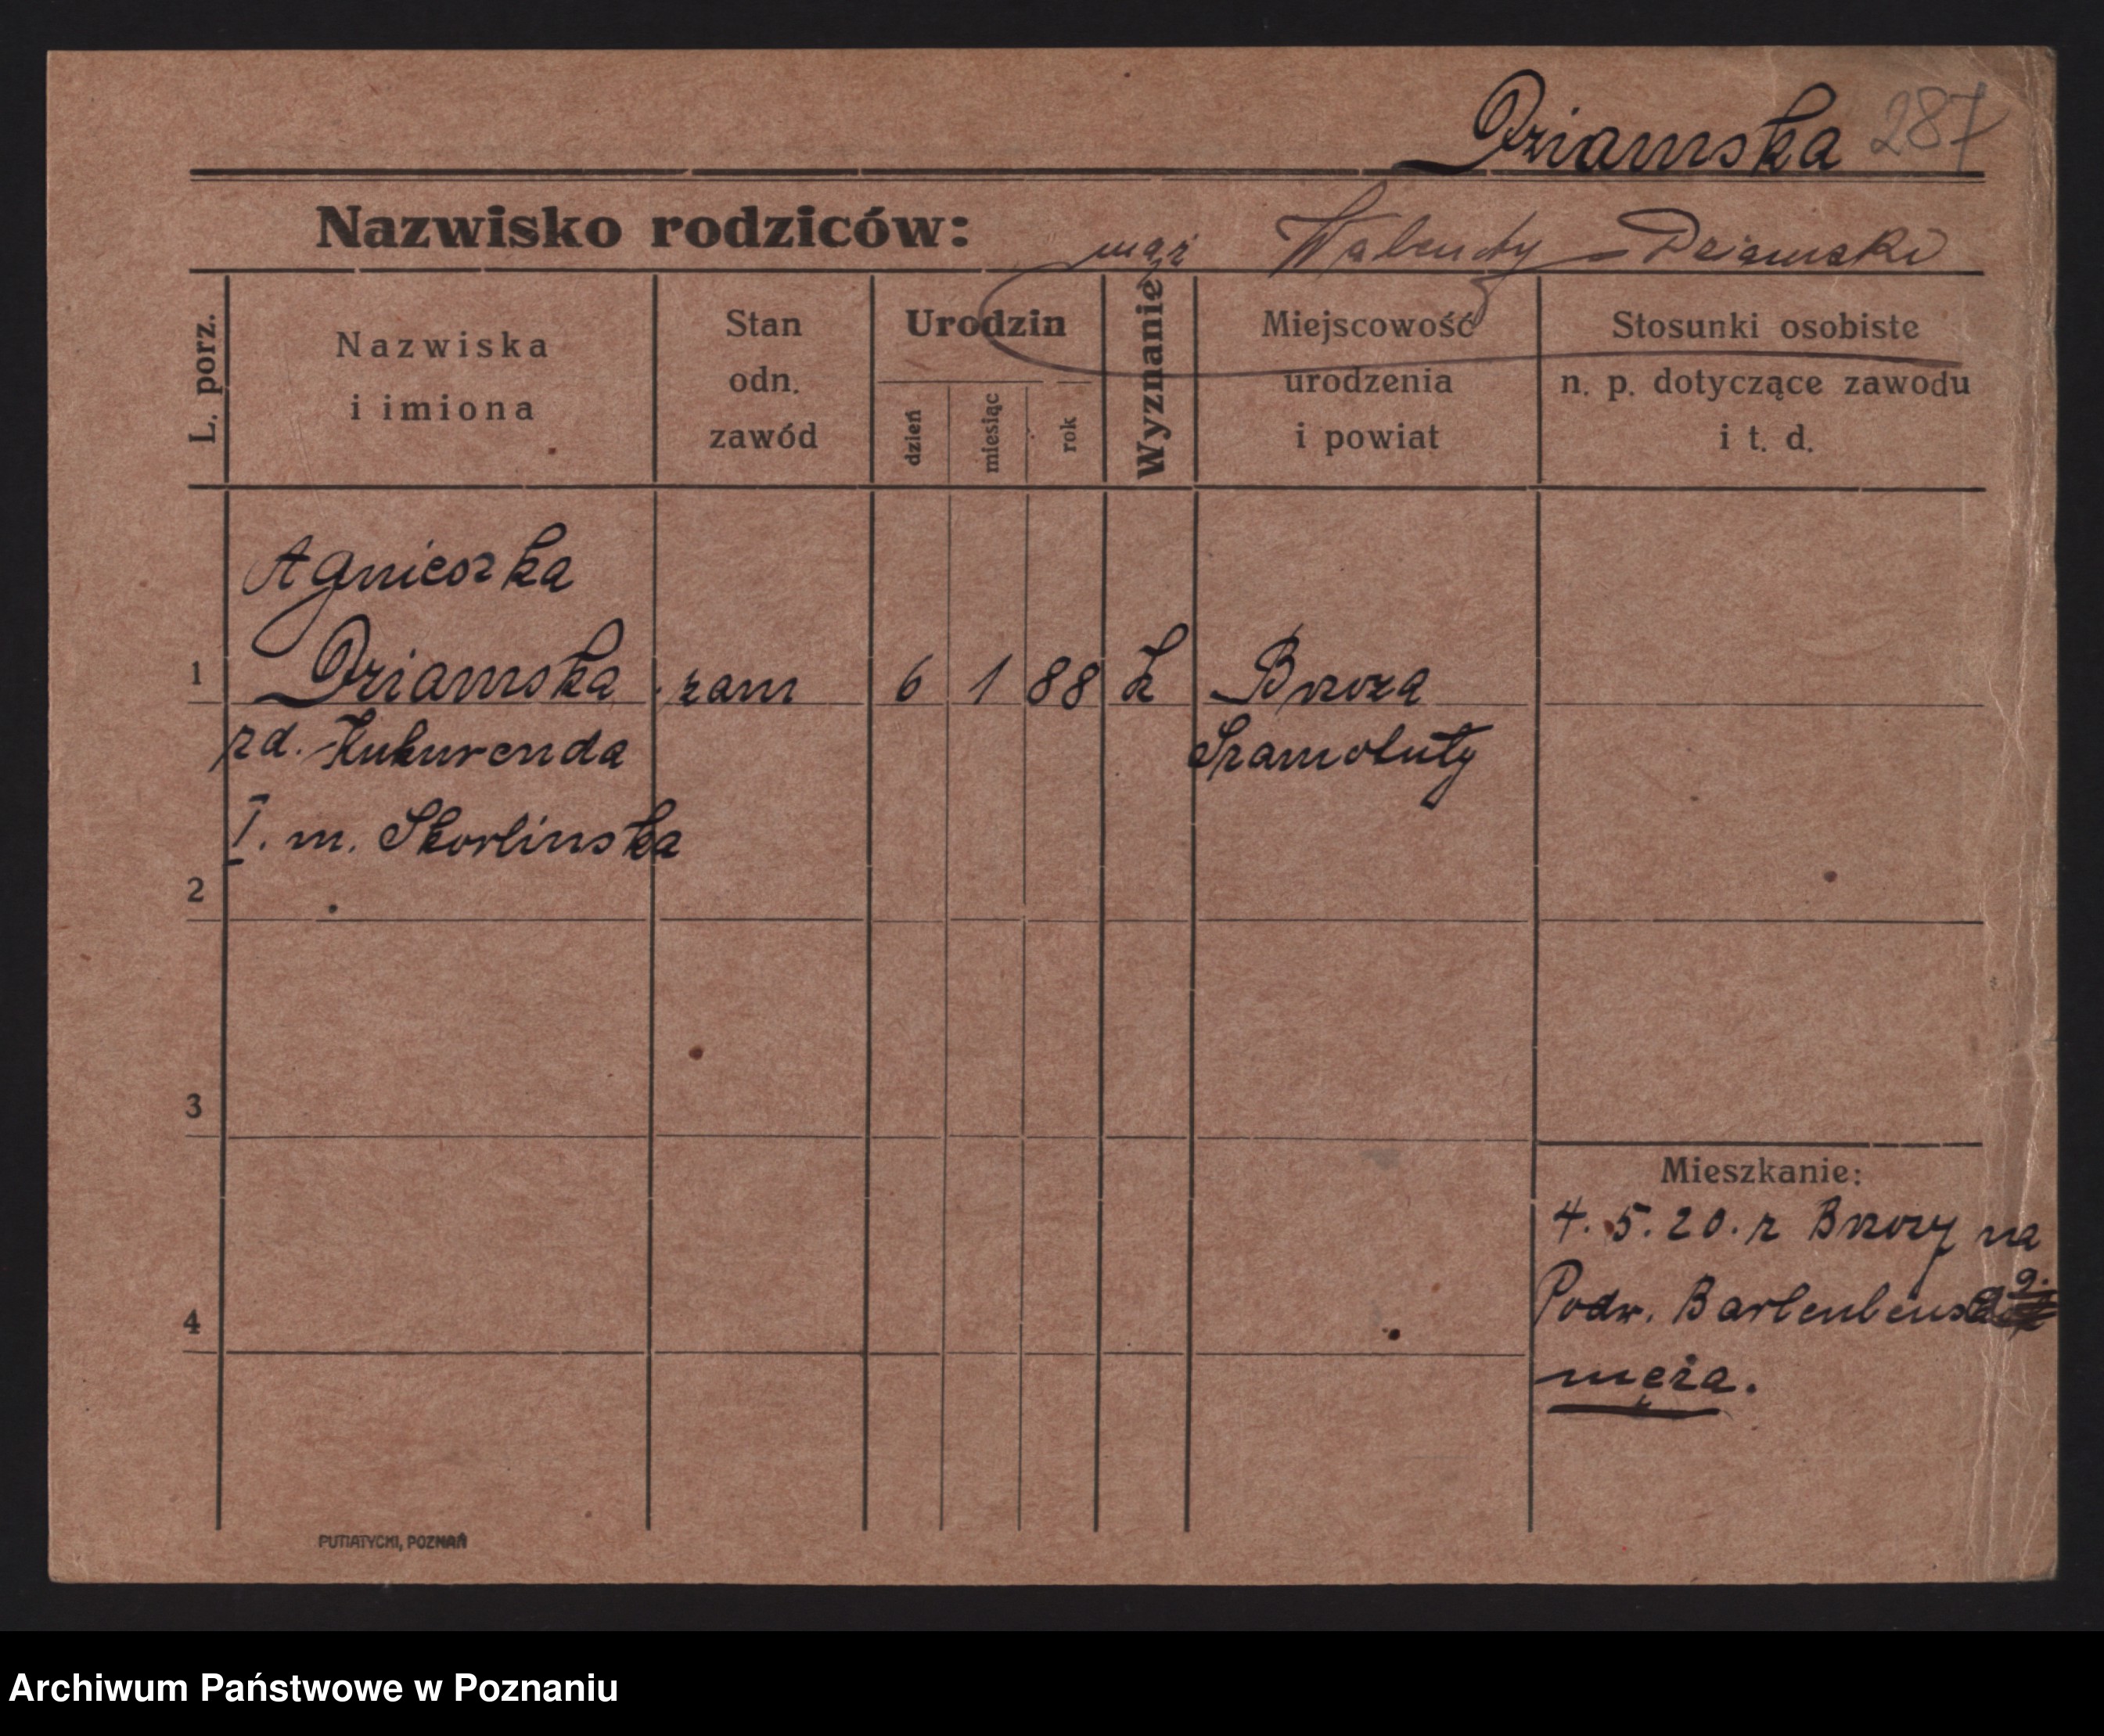 Dziamska 287
Nazwisko rodziców: mąż Walenty Dziamski
L. porz.
Nazwiska
i imiona
Stan
odn.
zawód
Urodzin
dzień
miesiąc
rok
Wyznanie
Miejscowość
urodzenia
i powiat
Stosunki osobiste
n. p. dotyczące zawodu
i t. d.
Agnieszka
1 Dziamska zam 6 1 88 k Brzoza
zd. Kukurenda Szamotuły
I. m. Skorlinska
2
3
4
Mieszkanie:
4. 5. 20. z Brzozy na
Podw. 9.
męża.
PUTIATYCKI, POZNAŃ
Archiwum Państwowe w Poznaniu